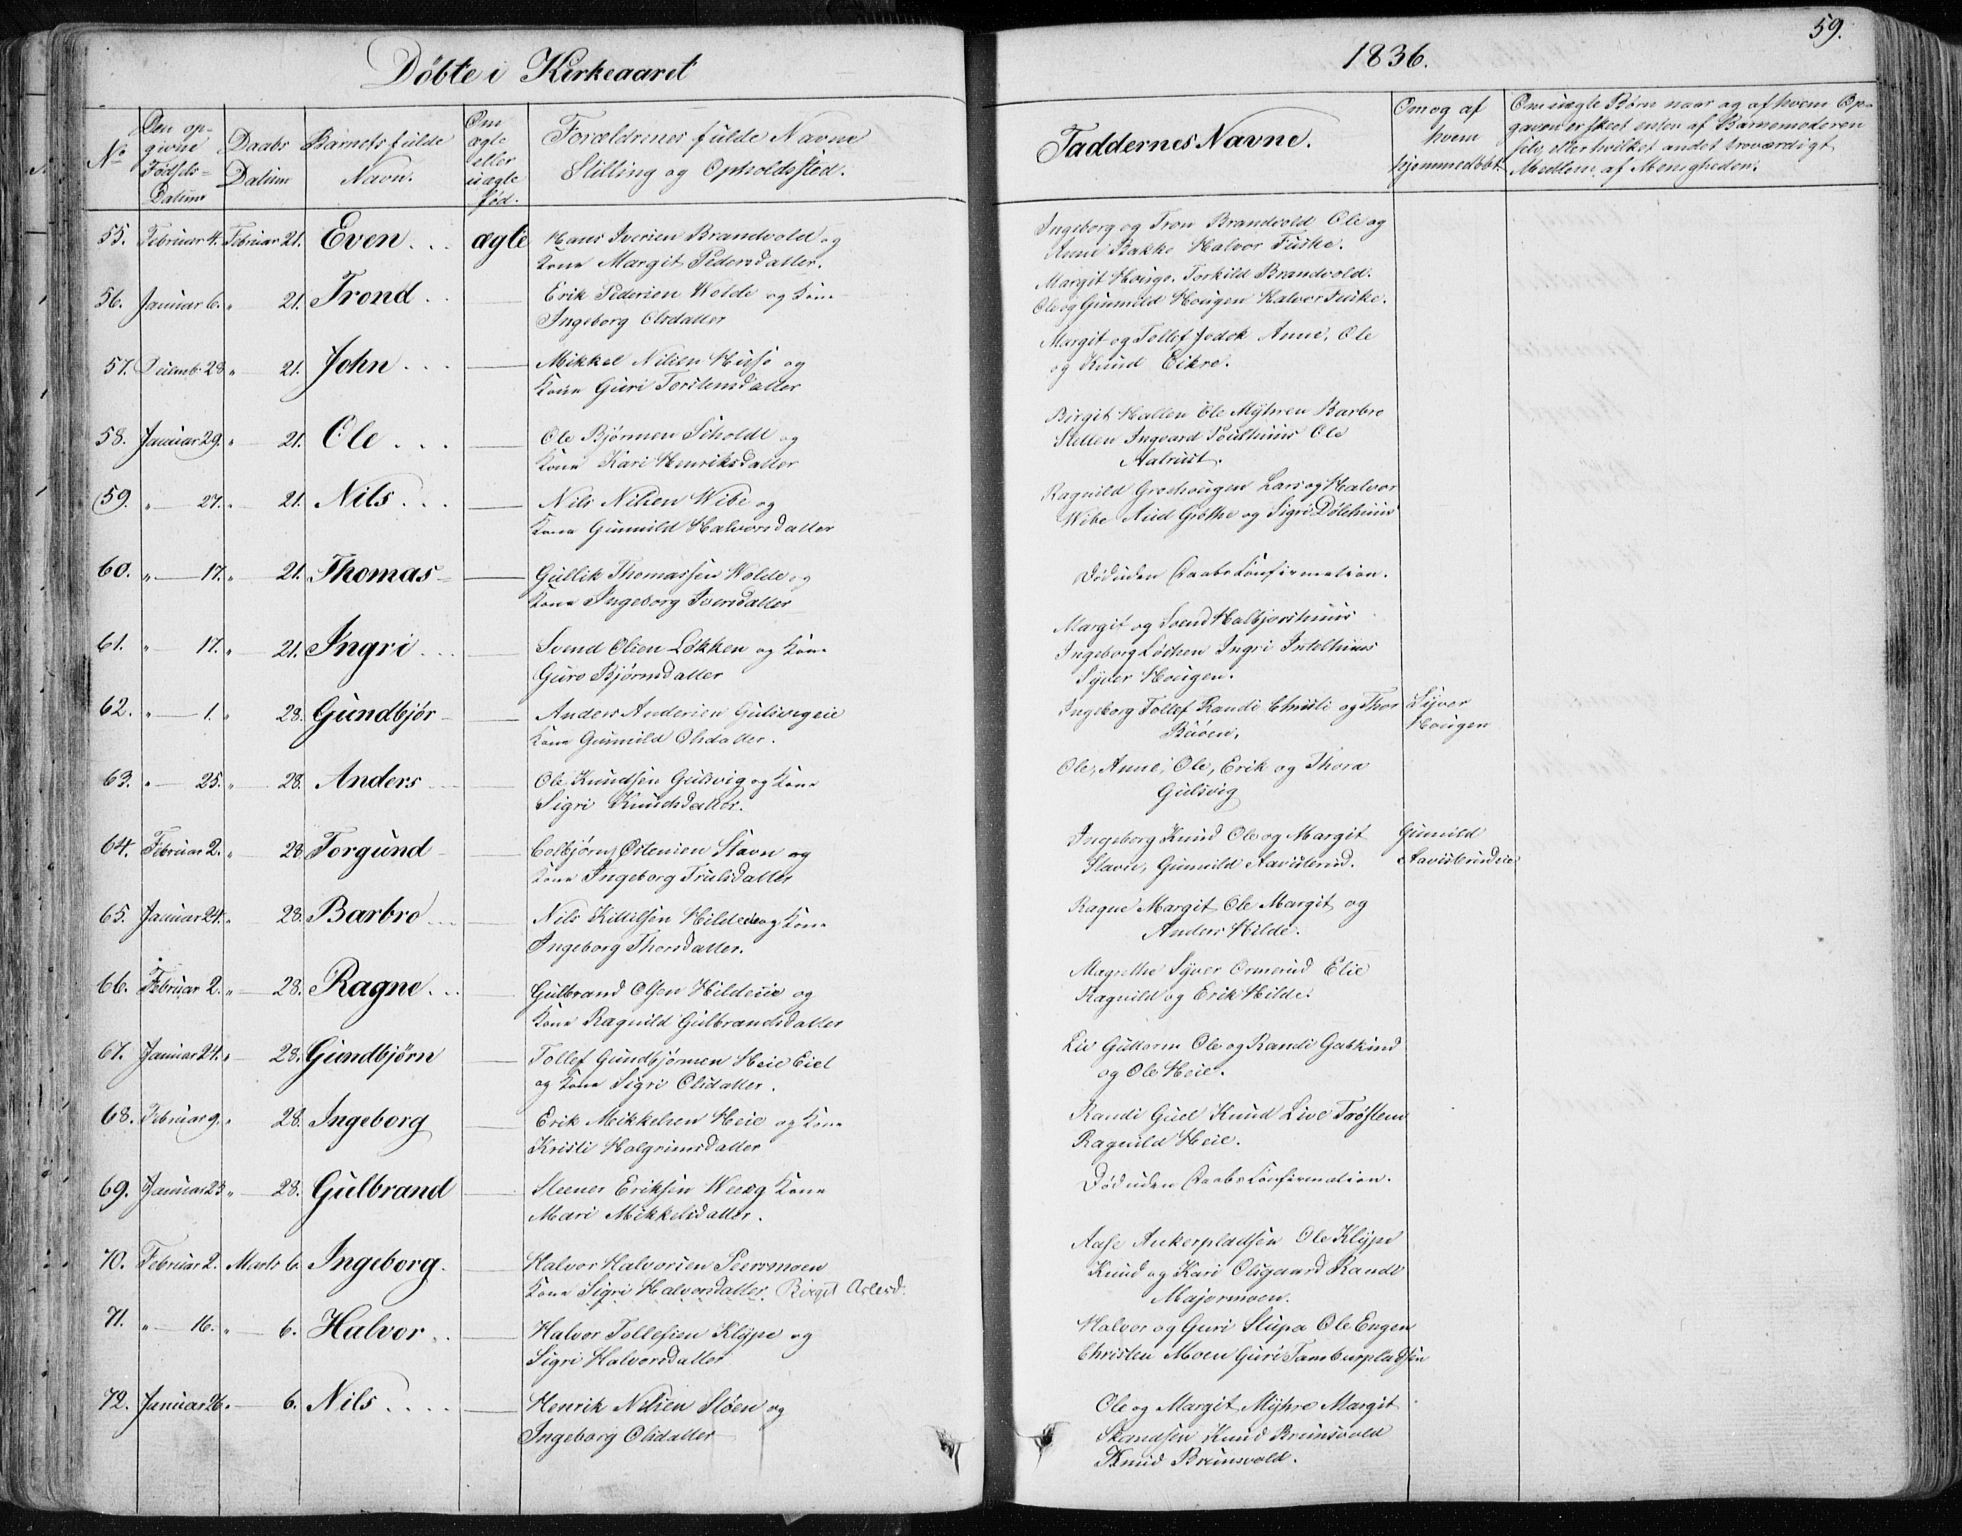 Døbte i Kirkeaaret
1836.
59.
No
Den op-
givne
Fødsels-
Datum
Daabs
Datum
Barnets fulde
Navn.
Om
ægte
eller
uægte
fød.
Forældrenes fulde Navne
Stilling og Opholdssted.
Faddernes Navne.
Om og af
hvem
hjemmedøbt.
Om uægte Børn naar og af hvem Op-
gaven er skeet enten af Barnemoderen
selv, eller hvilket andet troværdigt
Medlem af Menigheden.
55. Februar 4. Februar 21. Even ægte Hans Iversen Brandvold og
Kone Margit Pedersdatter.
Ingeborg og Tron Brandvold Ole og
Anne Bakke Halvor Fuske.
56. Januar 6. " 21. Trond Erik Pedersen Wolde og Kone
Ingeborg Olsdatter
Margit Houge. Torkild Brandvold.
Ole og Gunnild Hougen Halvor Fuske.
57. Decemb. 28 " 21. John Mikkel Nilsen og
Kone Guri Torstensdatter
Margit og Tollef Anne, Ole
og Knud Eikre.
58. Januar 29. " 21. Ole Ole Bjørnsen og
Kone Kari Henriksdatter
Birgit Hallen Ole Myhren Barbro
Ingvard Ole
Aalrust.
59. " 27. " 21. Nils Nils Nilsen Wibe og
Kone Gunnild Halvorsdatter
Ragnild Lars og Halvor
Wibe Aud Grøthe og Sigri
60. " 17. " 21. Thomas Gullik Thomassen Wolde og
Kone Ingeborg Iversdatter
Død uden Daabs Confirmation.
61. " 17. " 21. Ingri Svend Olsen Løkken og Kone
Guro Bjørnsdatter
Margit og Svend
Ingeborg Løkken Ingri
Syver Hougen.
62. " 1. " 28. Gundbjør Anders Andersen Gulsvigeie
Kone Gunnild Olsdatter.
Ingeborg Tollef Randi Christi og Thor
Bråten.
Syver
Hougen
63. " 25. " 28. Anders Ole Knudsen Gulsvig og Kone
Sigri Knudsdatter.
Ole, Anne, Ole, Erik og Thora
Gulsvig
64. Februar 2. " 28 Torgund Colbjørn Østensen Stavn og
Kone Ingeborg Trulsdatter
Ingeborg Knud Ole og Margit
Stavn, Gunnild
Gunnild
65. Januar 24. " 28. Barbro Nils Kittilsen Hildeeie og Kone
Ingeborg Thorsdatter.
Ragne Margit Ole Margit og
Anders Hilde.
66. Februar 2. " 28. Ragne Gulbrand Olsen Hildeeie og
Kone Ragnild Gulbrandsdatter
Magrethe Syver Ormerud Elie
Ragnild og Erik Hilde.
67. Januar 24. " 28. Gundbjørn Tollef Gundbjørnsen Heie Eiet
og Kone Sigri Olsdatter.
Liv Guttorm Ole og Randi
og Ole Heie.
68. Februar 9. " 28. Ingeborg Erik Mikkelsen Heie og Kone
Kristi Halgrimsdatter
Randi Knud Live Trøstem
Ragnild Heie.
69. Januar 23 " 28. Gulbrand Steener Eriksen Kone
Mari Mikkelsdatter.
Død uden Daabs Confirmation.
70. Februar 2. Marts 6. Ingeborg. Halvor Halvorsen
Kone Sigri Halvorsdatter. Birgit
Aase Ankerpladsen Ole Klype
Knud og Kari Olsgaard Randi
Majormoen.
71. " 16. " 6. Halvor Halvor Tollefsen Klype og
Sigri Halvorsdatter
Halvor og Guri Ole Engen
Christen Moen Guri Tamburpladsen
72. Januar 26. " 6. Nils Henrik Nilsen Sløen og
Ingeborg Olsdatter
Ole og Margit Myhre Margit
Knud Brunsvold
Knud Brunsvold.